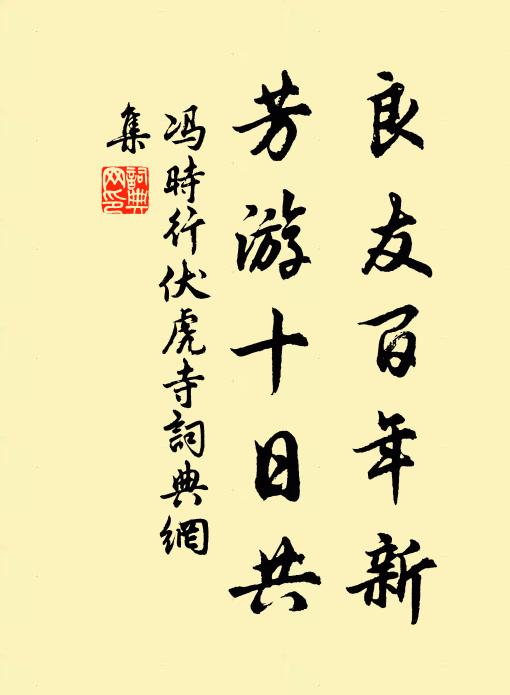 良友百年新
芳游十日共
冯時行伏虎寺詞典網
集
詞典网印